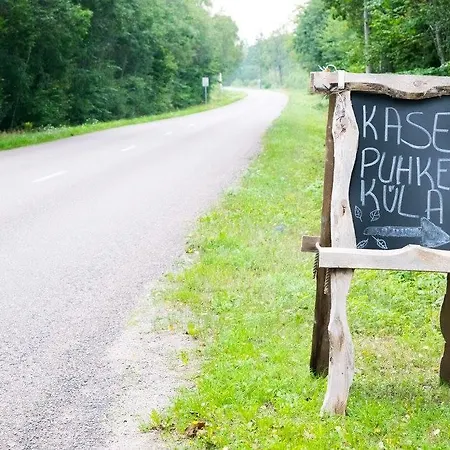 KASE
PUHKE
KÜLA